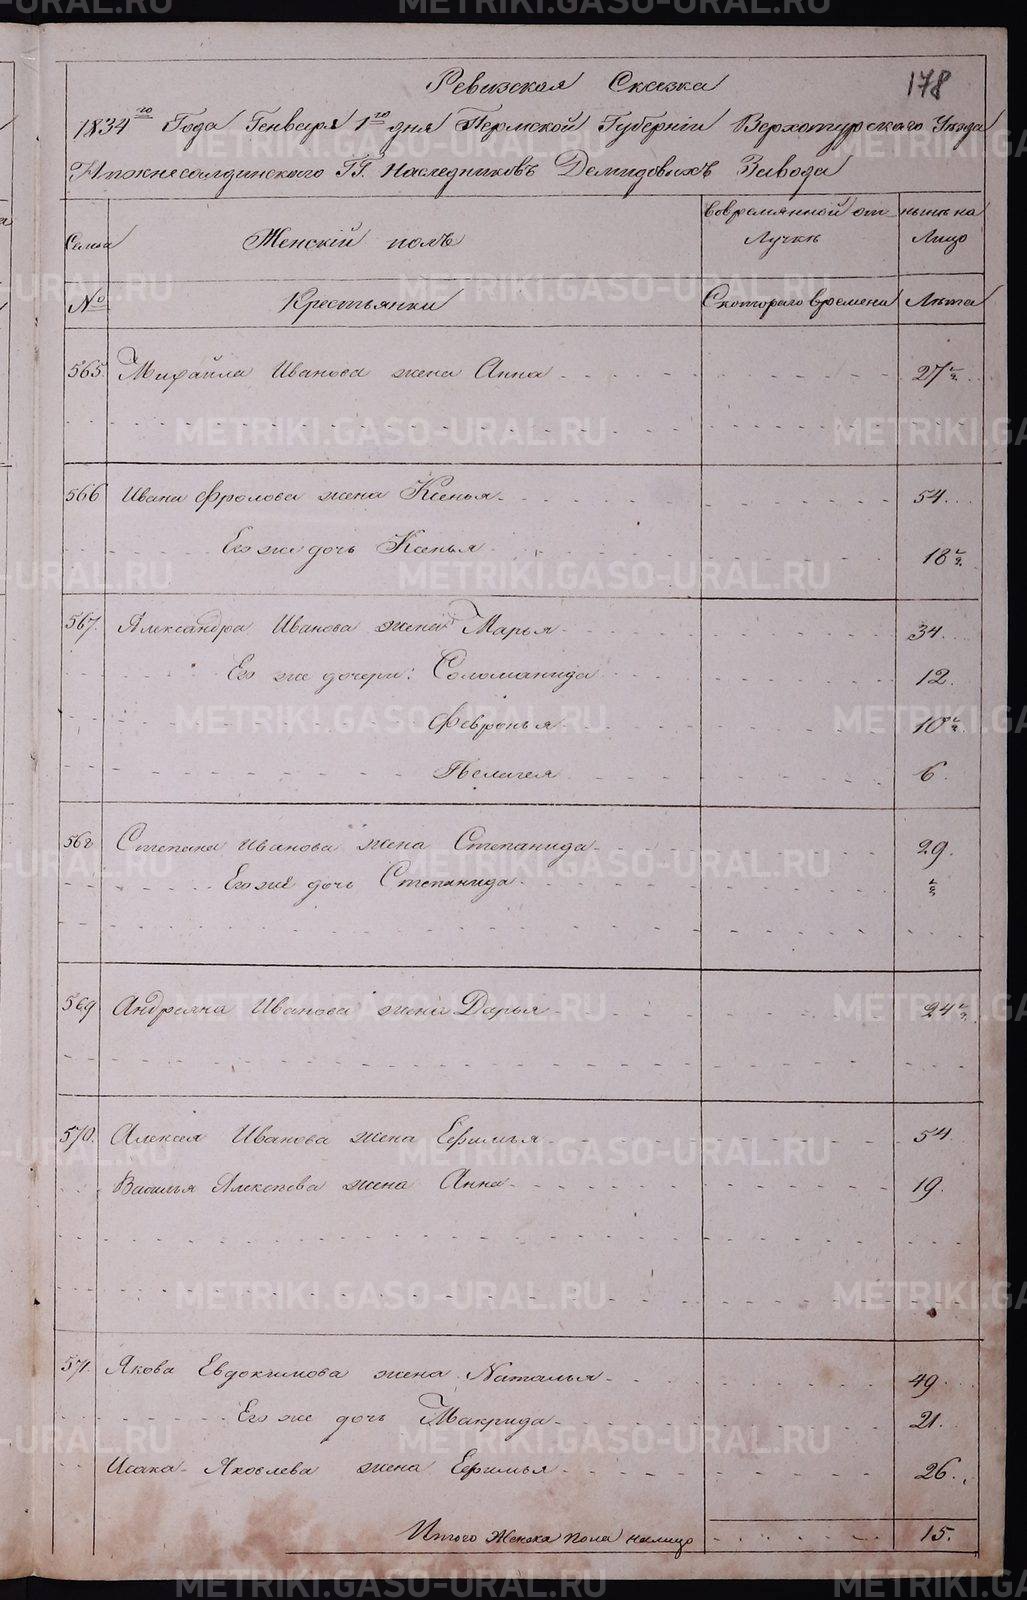 178
Ревизская Сказка
1834го Года Генваря 1го дня Пермской Губернiи Верхотурского Уезда
Нижнесалдинскаго ГГ. Наследниковъ Демидовыхъ Завода
Семья Женскiй полъ Вовремянной от лучкѣ нынѣ на Лицо
№ Крестьянки Скотораго времени Лѣта
565. Михайла Иванова жена Анна 27 1/2
566 Ивана Фролова жена Ксенья 54
Его же дочь Ксенья 18 1/2
567. Александра Иванова жена Марья 34
Его же дочери: Соломанида 12
Февронья 10 1/2
Пелагея 6
568 Степана Иванова жена Степанида 29
Его же дочь Степанида 1/2
569 Андреяна Иванова жена Дарья 24 1/2
570. Алексея Иванова жена Ефимья 54
Василья Алексеева жена Анна 19
571. Якова Евдокимова жена Наталья 49
Его же дочь Макрида 21
Исака Яковлева жена Ефимья 26
Итого женска пола налицо 15.
METRIKI.GASO-URAL.RU